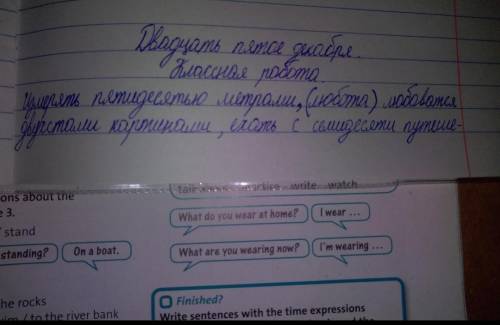 Двадцать пятое декабря.
Классная работа.
Измерять пятидесятью метрами, (любота) любоваться
двустами картинами, ехать с семидесяти путеше-
ions about the
e 3.
/ stand
standing?
On a boat.
write
watch
What do you wear at home?
I wear ...
What are you wearing now?
I'm wearing ...
he rocks
wim / to the river bank
Finished?
Write sentences with the time expressions